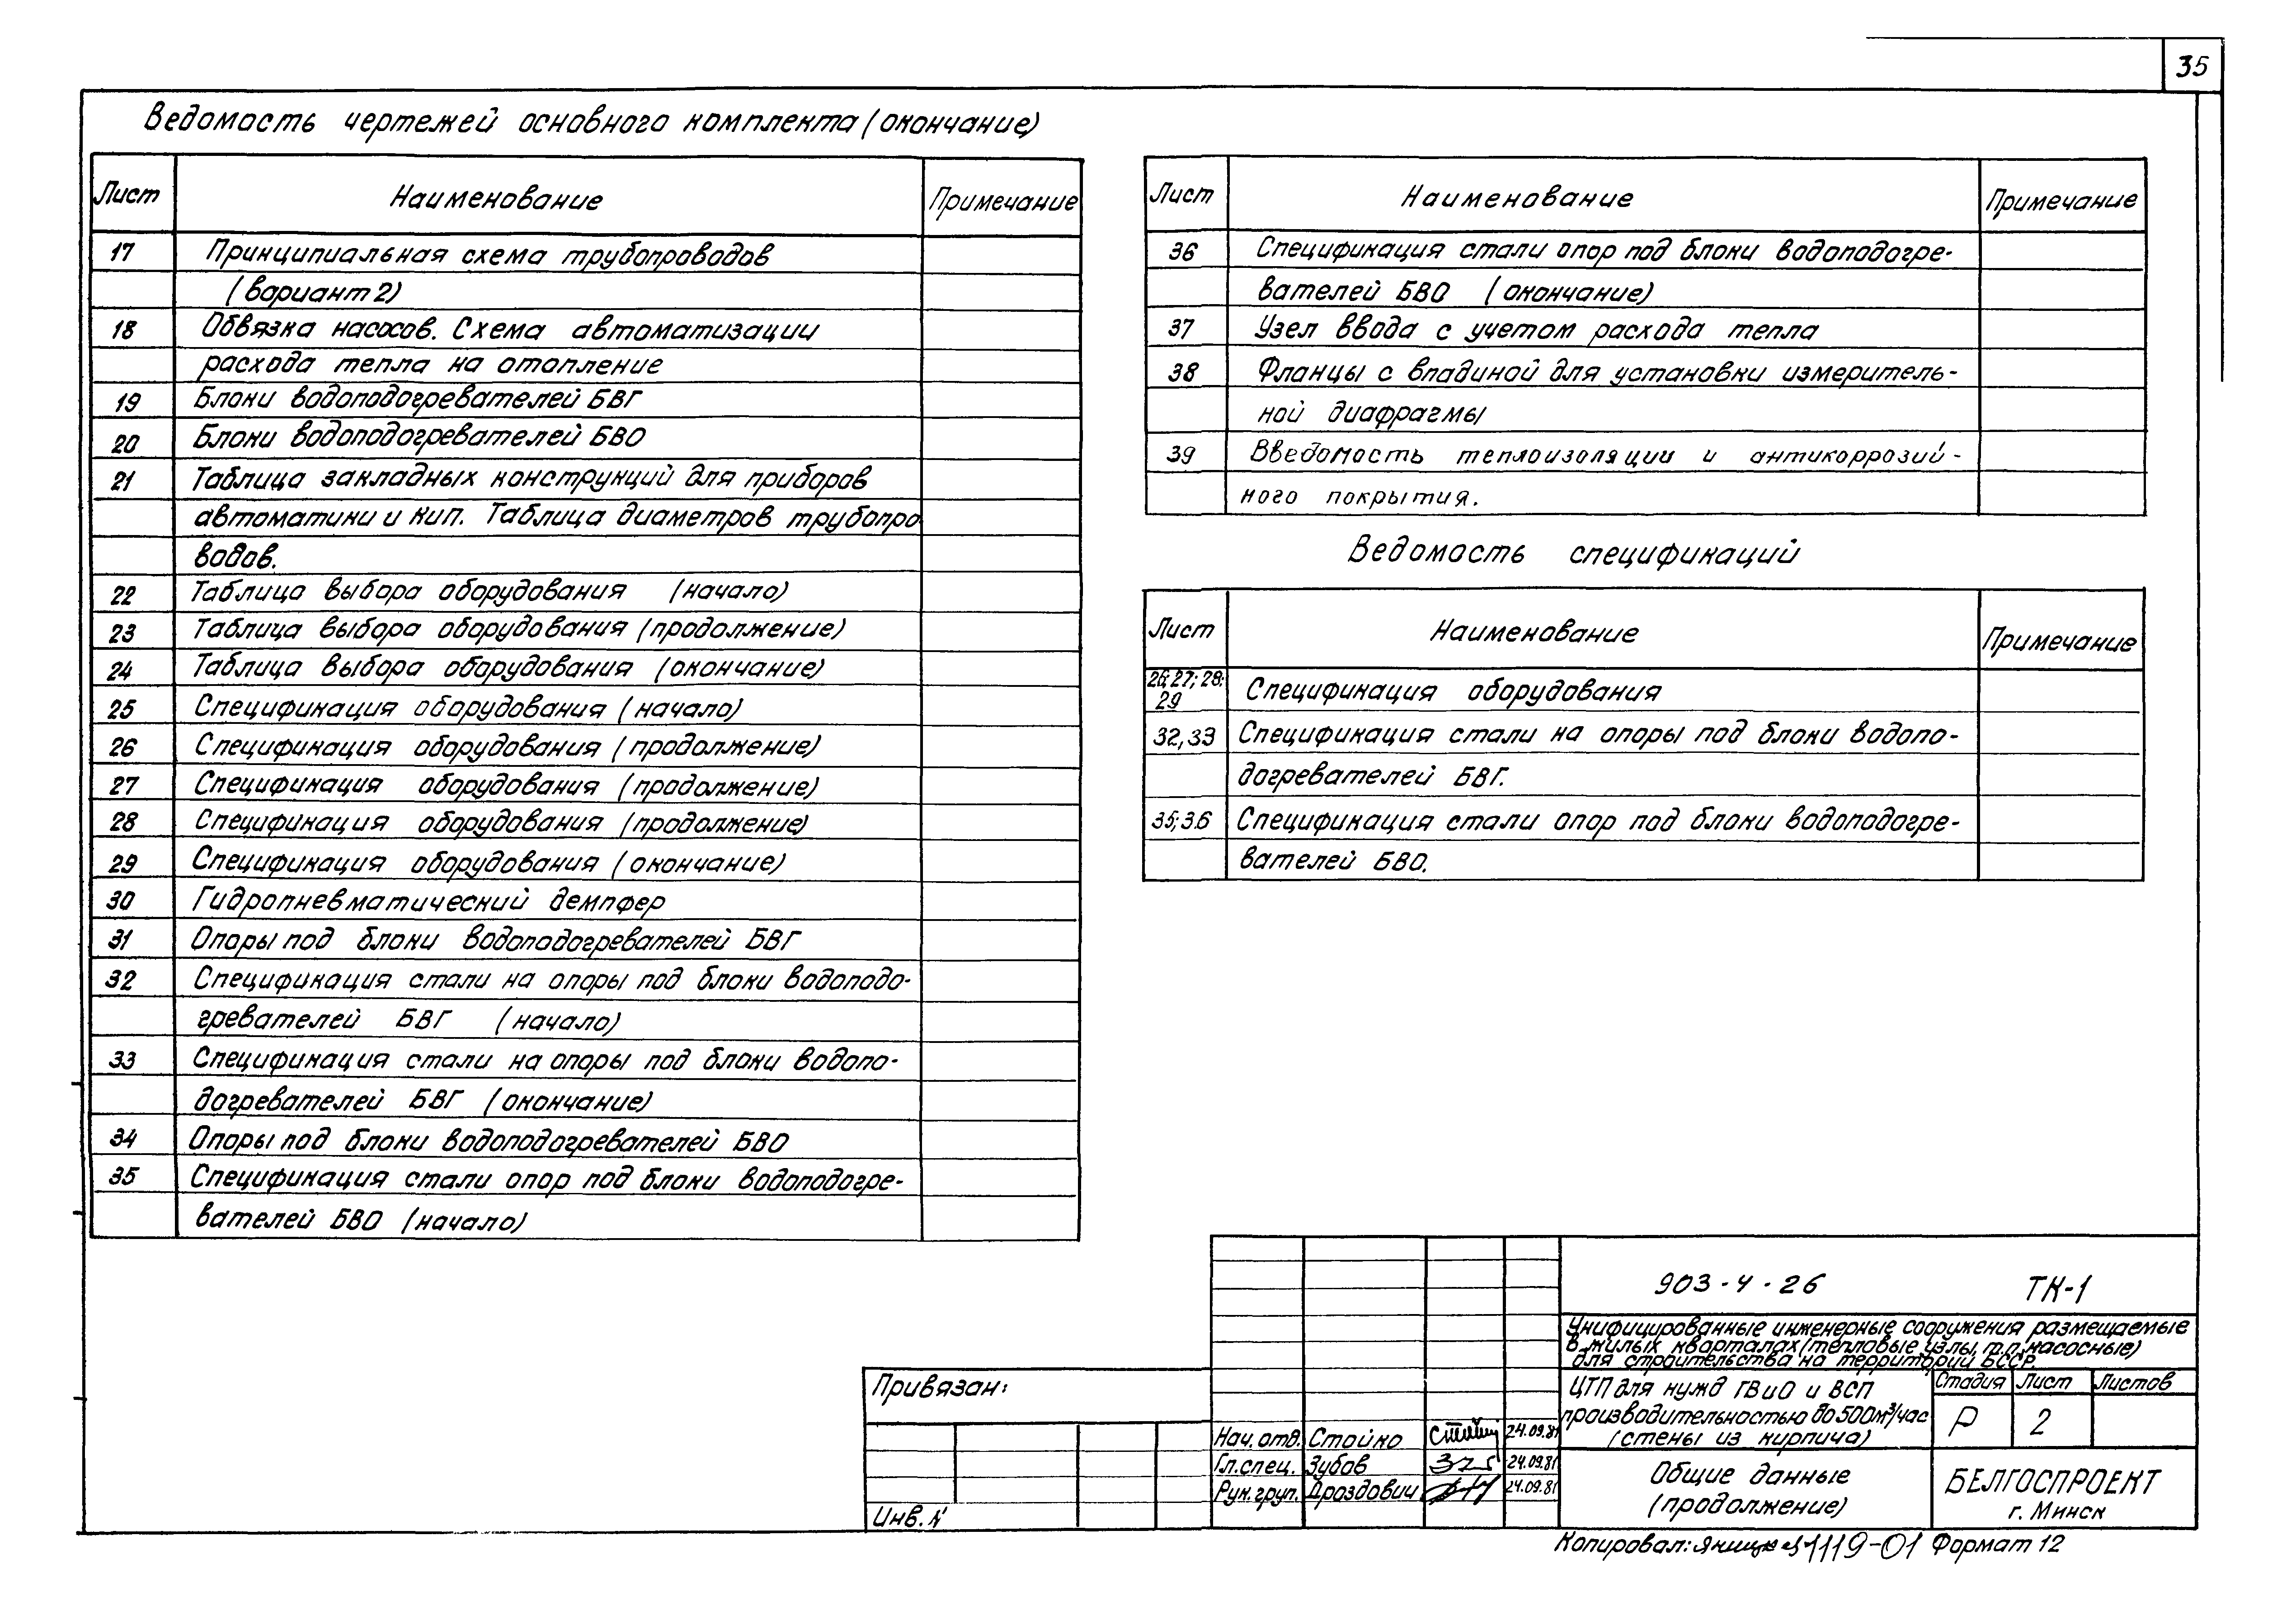 35
Ведомость чертежей основного комплекта (окончание)
Лист Наименование Примечание
17 Принципиальная схема трубопроводов
(вариант 2)
18 Обвязка насосов. Схема автоматизации
расхода тепла на отопление
19 Блоки водоподогревателей БВГ
20 Блоки водоподогревателей БВО
21 Таблица закладных конструкций для приборов
автоматики и кип. Таблица диаметров трубопро
водов.
22 Таблица выбора оборудования (начало)
23 Таблица выбора оборудования (продолжение)
24 Таблица выбора оборудования (окончание)
25 Спецификация оборудования (начало)
26 Спецификация оборудования (продолжение)
27 Спецификация оборудования (продолжение)
28 Спецификация оборудования (продолжение)
29 Спецификация оборудования (окончание)
30 Гидропневматический демпфер
31 Опоры под блоки водоподогревателей БВГ
32 Спецификация стали на опоры под блоки водоподо-
гревателей БВГ (начало)
33 Спецификация стали на опоры под блоки водопо-
догревателей БВГ (окончание)
34 Опоры под блоки водоподогревателей БВО
35 Спецификация стали опор под блоки водоподогре-
вателей БВО (начало)
Лист Наименование Примечание
36 Спецификация стали опор под блоки водоподогре-
вателей БВО (окончание)
37 Узел ввода с учетом расхода тепла
38 Фланцы с впадиной для установки измеритель-
ной диафрагмы
39 Введомость теплоизоляции и антикоррозий-
ного покрытия.
Ведомость спецификаций
Лист Наименование Примечание
26; 27; 28;
29 Спецификация оборудования
32, 33 Спецификация стали на опоры под блоки водопо-
догревателей БВГ.
35; 36 Спецификация стали опор под блоки водоподогре-
вателей БВО.
903-4-26 ТК-1
Унифицированные инженерные сооружения размещаемые
в жилых кварталах (тепловые узлы, т.п, насосные)
для строительства на территории БССР.
ЦТП для нужд ГВ и О и ВСП
производительностью до 500 м³/час
(стены из кирпича)
Стадия Лист Листов
Р 2
Общие данные
(продолжение)
БЕЛГОСПРОЕКТ
г. Минск
Привязан:
Инв. №
Нач. отд. Стойко 24.09.81
Гл. спец. Зубов 24.09.81
Рук. груп. Дроздович 24.09.81
Копировал: 1119-01 Формат 12